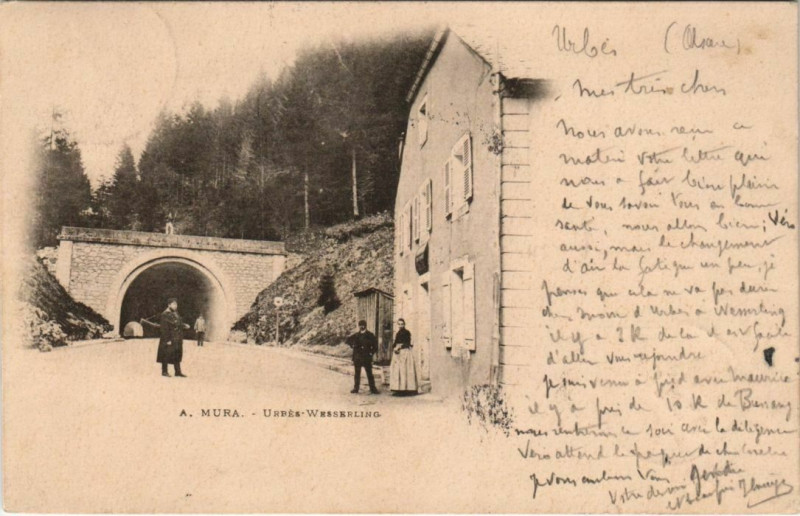 Urbès (Alsace)
Mes très chers
Nous avons reçu ce
matin votre lettre qui
nous a fait bien plaisir
de vous savoir tous en bonne
santé, nous allons bien; Véro
aussi, mais le changement
d'air la fatigue un peu, je
pense que cela ne va pas durer
d'Urbès à Wesserling
il y a 3 K de la c'est facile
d'aller vous rejoindre
Je suis venu à pied avec Maurice
il y a près de 10 K de Bussang
nous rentrerons ce soir avec la diligence
Véro attend le paquet de
Je vous embrasse Tous
Votre
A. MURA. - URBÈS-WESSERLING